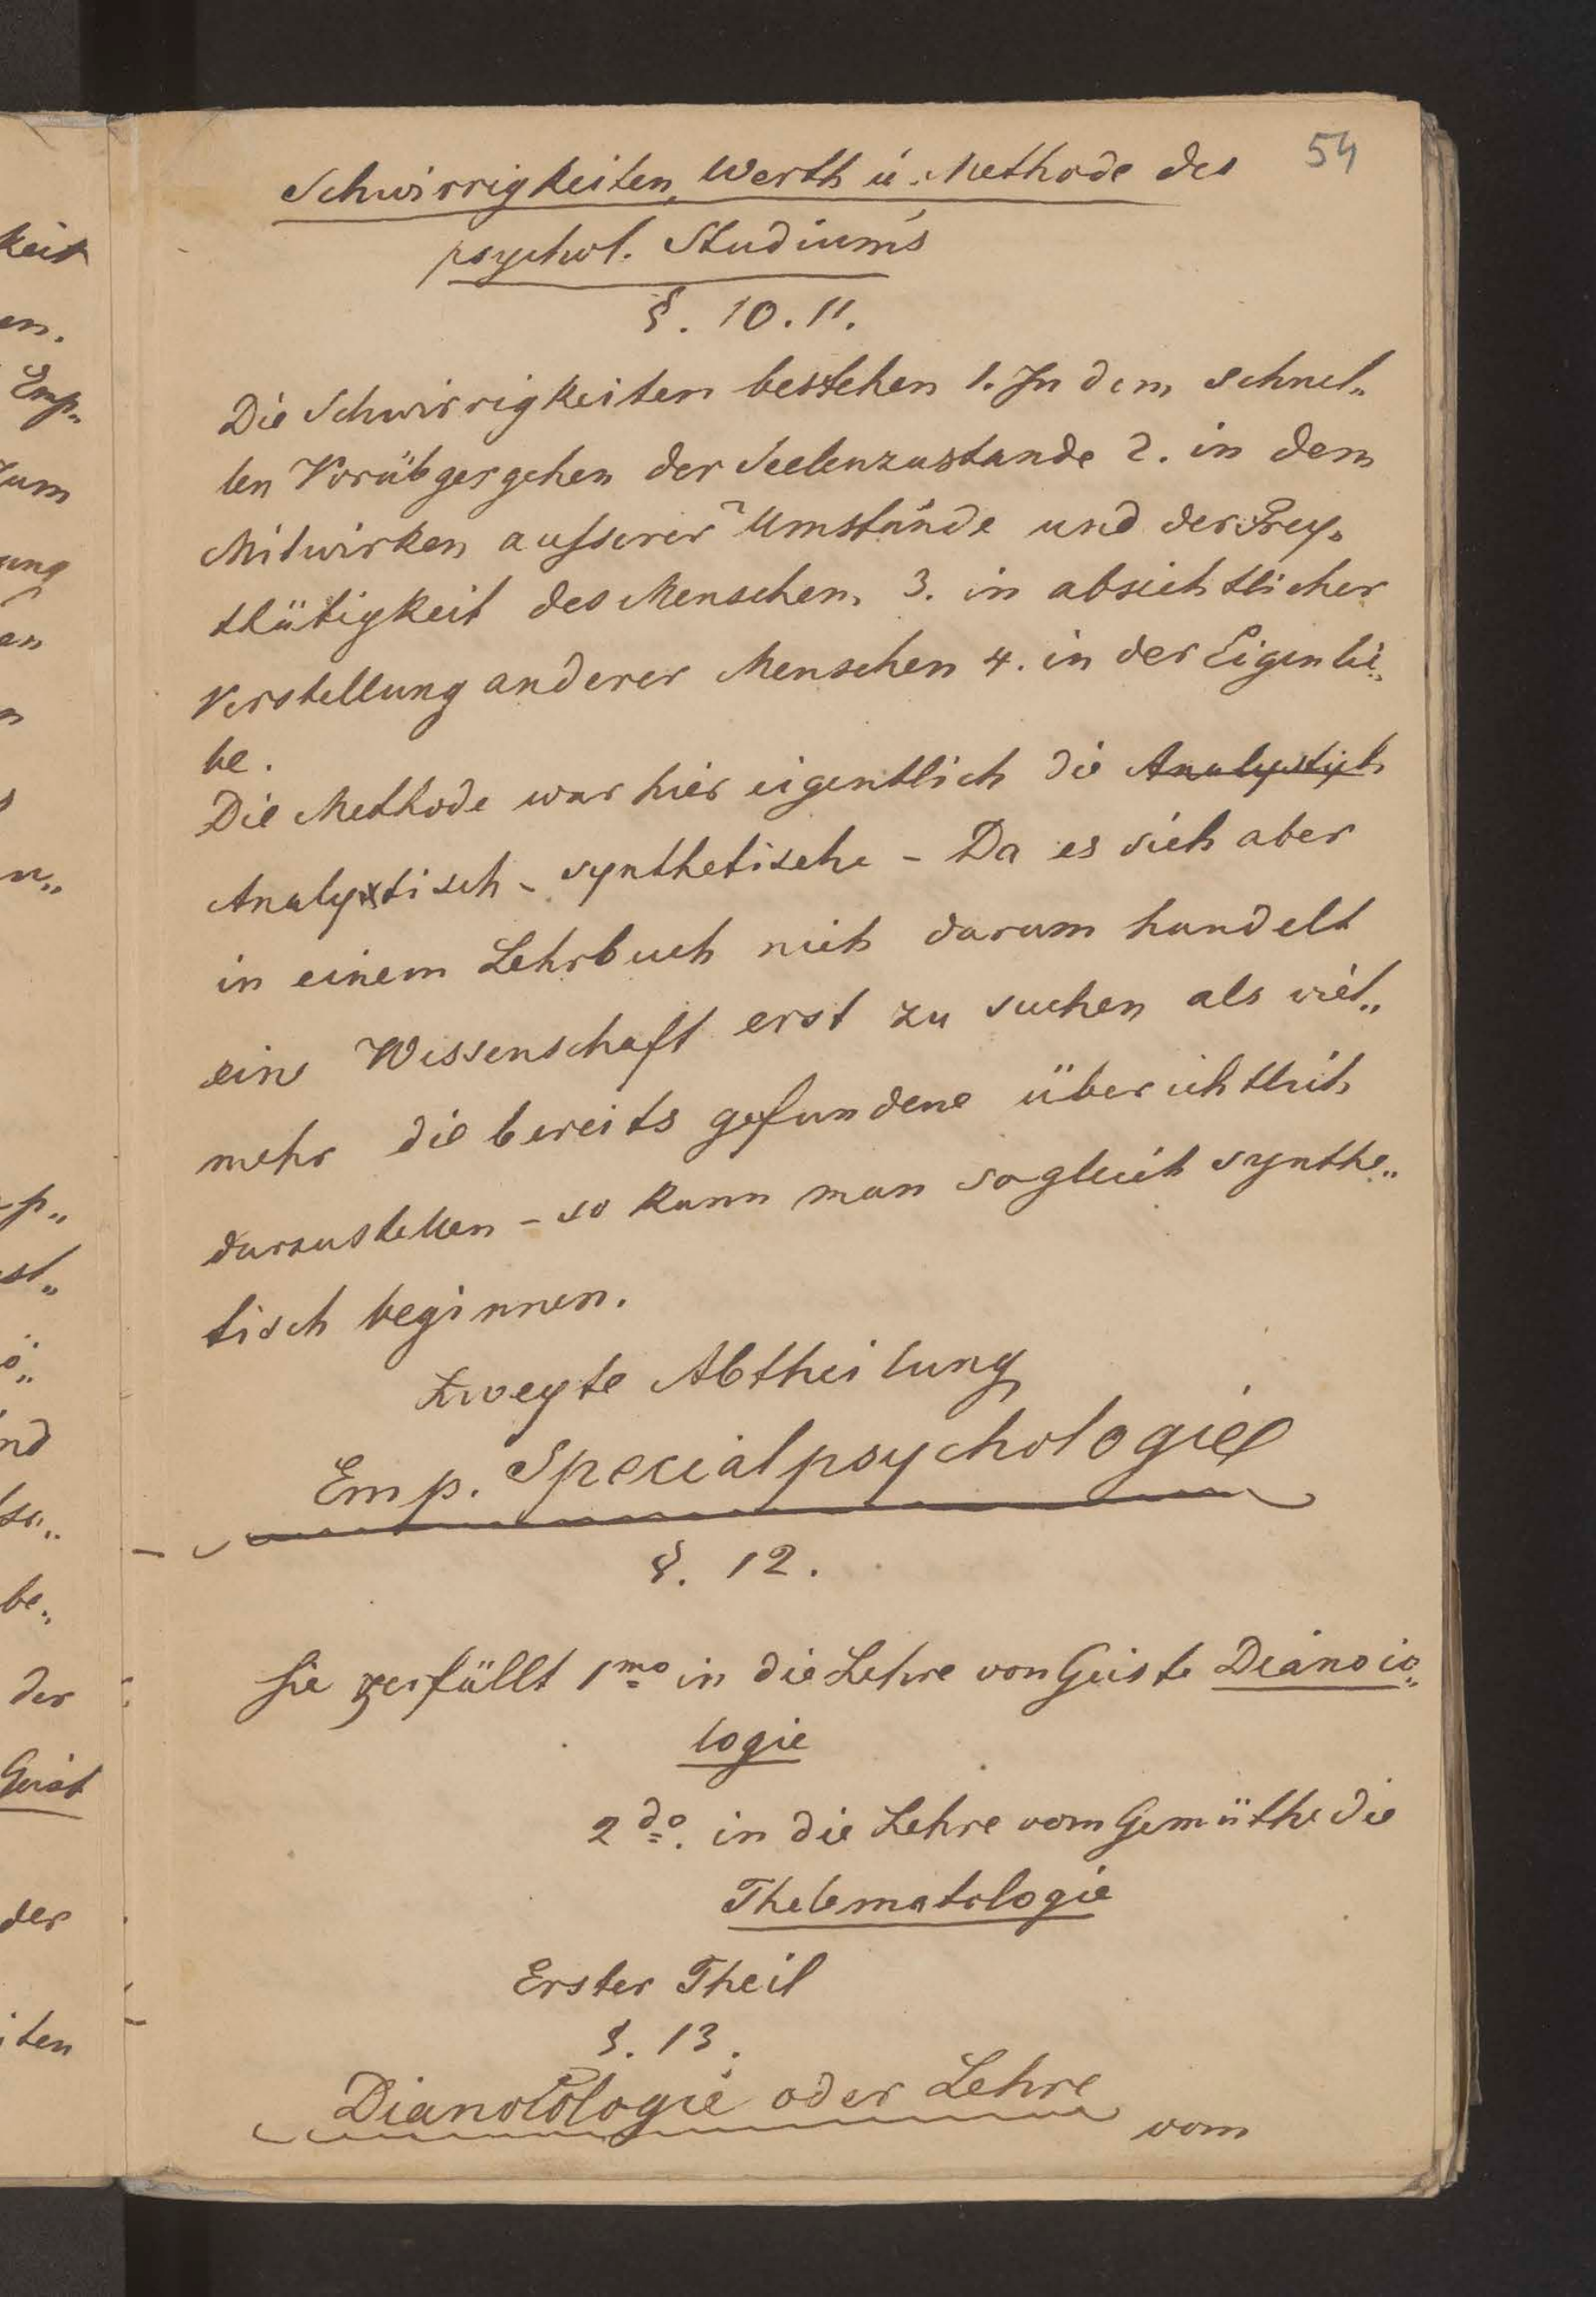 54
Schwirrigkeiten, Werth u. Methode des
psychol. Studium's
§. 10. 11.
Die Schwirrigkeiten bestehen 1. In dem schnel„
len Vorübgergehen der Seelenzustande 2. in dem
Mitwirken ausserer Umstände und der Frey„
thätigkeit des Menschen, 3. in absichtlicher
Verstellung anderer Menschen 4. in der Eigenlie„
be.
Die Methode war hier eigentlich die
Analytisch - synthetische - Da es sich aber
in einem Lehrbuch nich darum handelt
eine Wissenschaft erst zu suchen als viel„
mehr die bereits gefundene überichtlich
darzustellen - so kann man sogleich synthe„
tisch beginnen.
Zweyte Abtheilung
Emp. Specialpsychologie
§. 12.
Sie zerfällt 1mo in die Lehre von Geiste Dianoio„
logie
2do. in die Lehre vom Gemüthe die
Thelematologie
Erster Theil
§. 13.
Dianoiologie oder Lehre
vom
keit
en.
Emp„
zum
ung
en
n
n„
p„
st„
ö„
nd
be„
der
Geist
der
iten